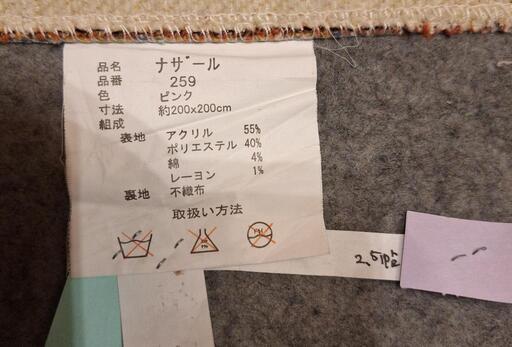 品名 ナザール
品番 259
色 ピンク
寸法 約200x200cm
組成
表地 アクリル 55%
ポリエステル 40%
綿 4%
レーヨン 1%
裏地 不織布
取扱い方法